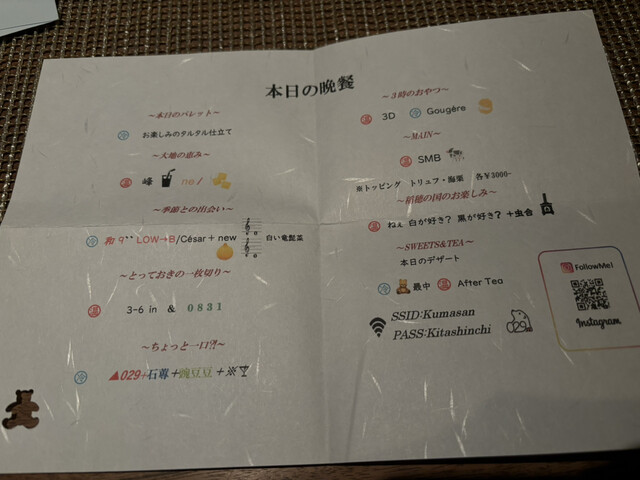 本日の晩餐
～本日のパレット～
冷 お楽しみのタルタル仕立て
～大地の恵み～
温 峰 no/
～季節との出会い～
冷 和 9`` LOW→B/César + new 白い竜髭菜
～とっておきの一枚切り～
温 3-6 in & 0831
～ちょっと一口⁈～
冷 ▲029+石蓴+豌豆豆+※
～3時のおやつ～
温 3D 冷 Gougère
～MAIN～
温 SMB
※トッピング トリュフ・海栗 各¥3000-
～稍穂の国のお楽しみ～
温 ねぇ 白が好き? 黒が好き? +虫合
～SWEETS&TEA～
本日のデザート
冷 最中 温 After Tea
SSID:Kumasan
PASS:Kitashinchi
FollowMe!
Instagram